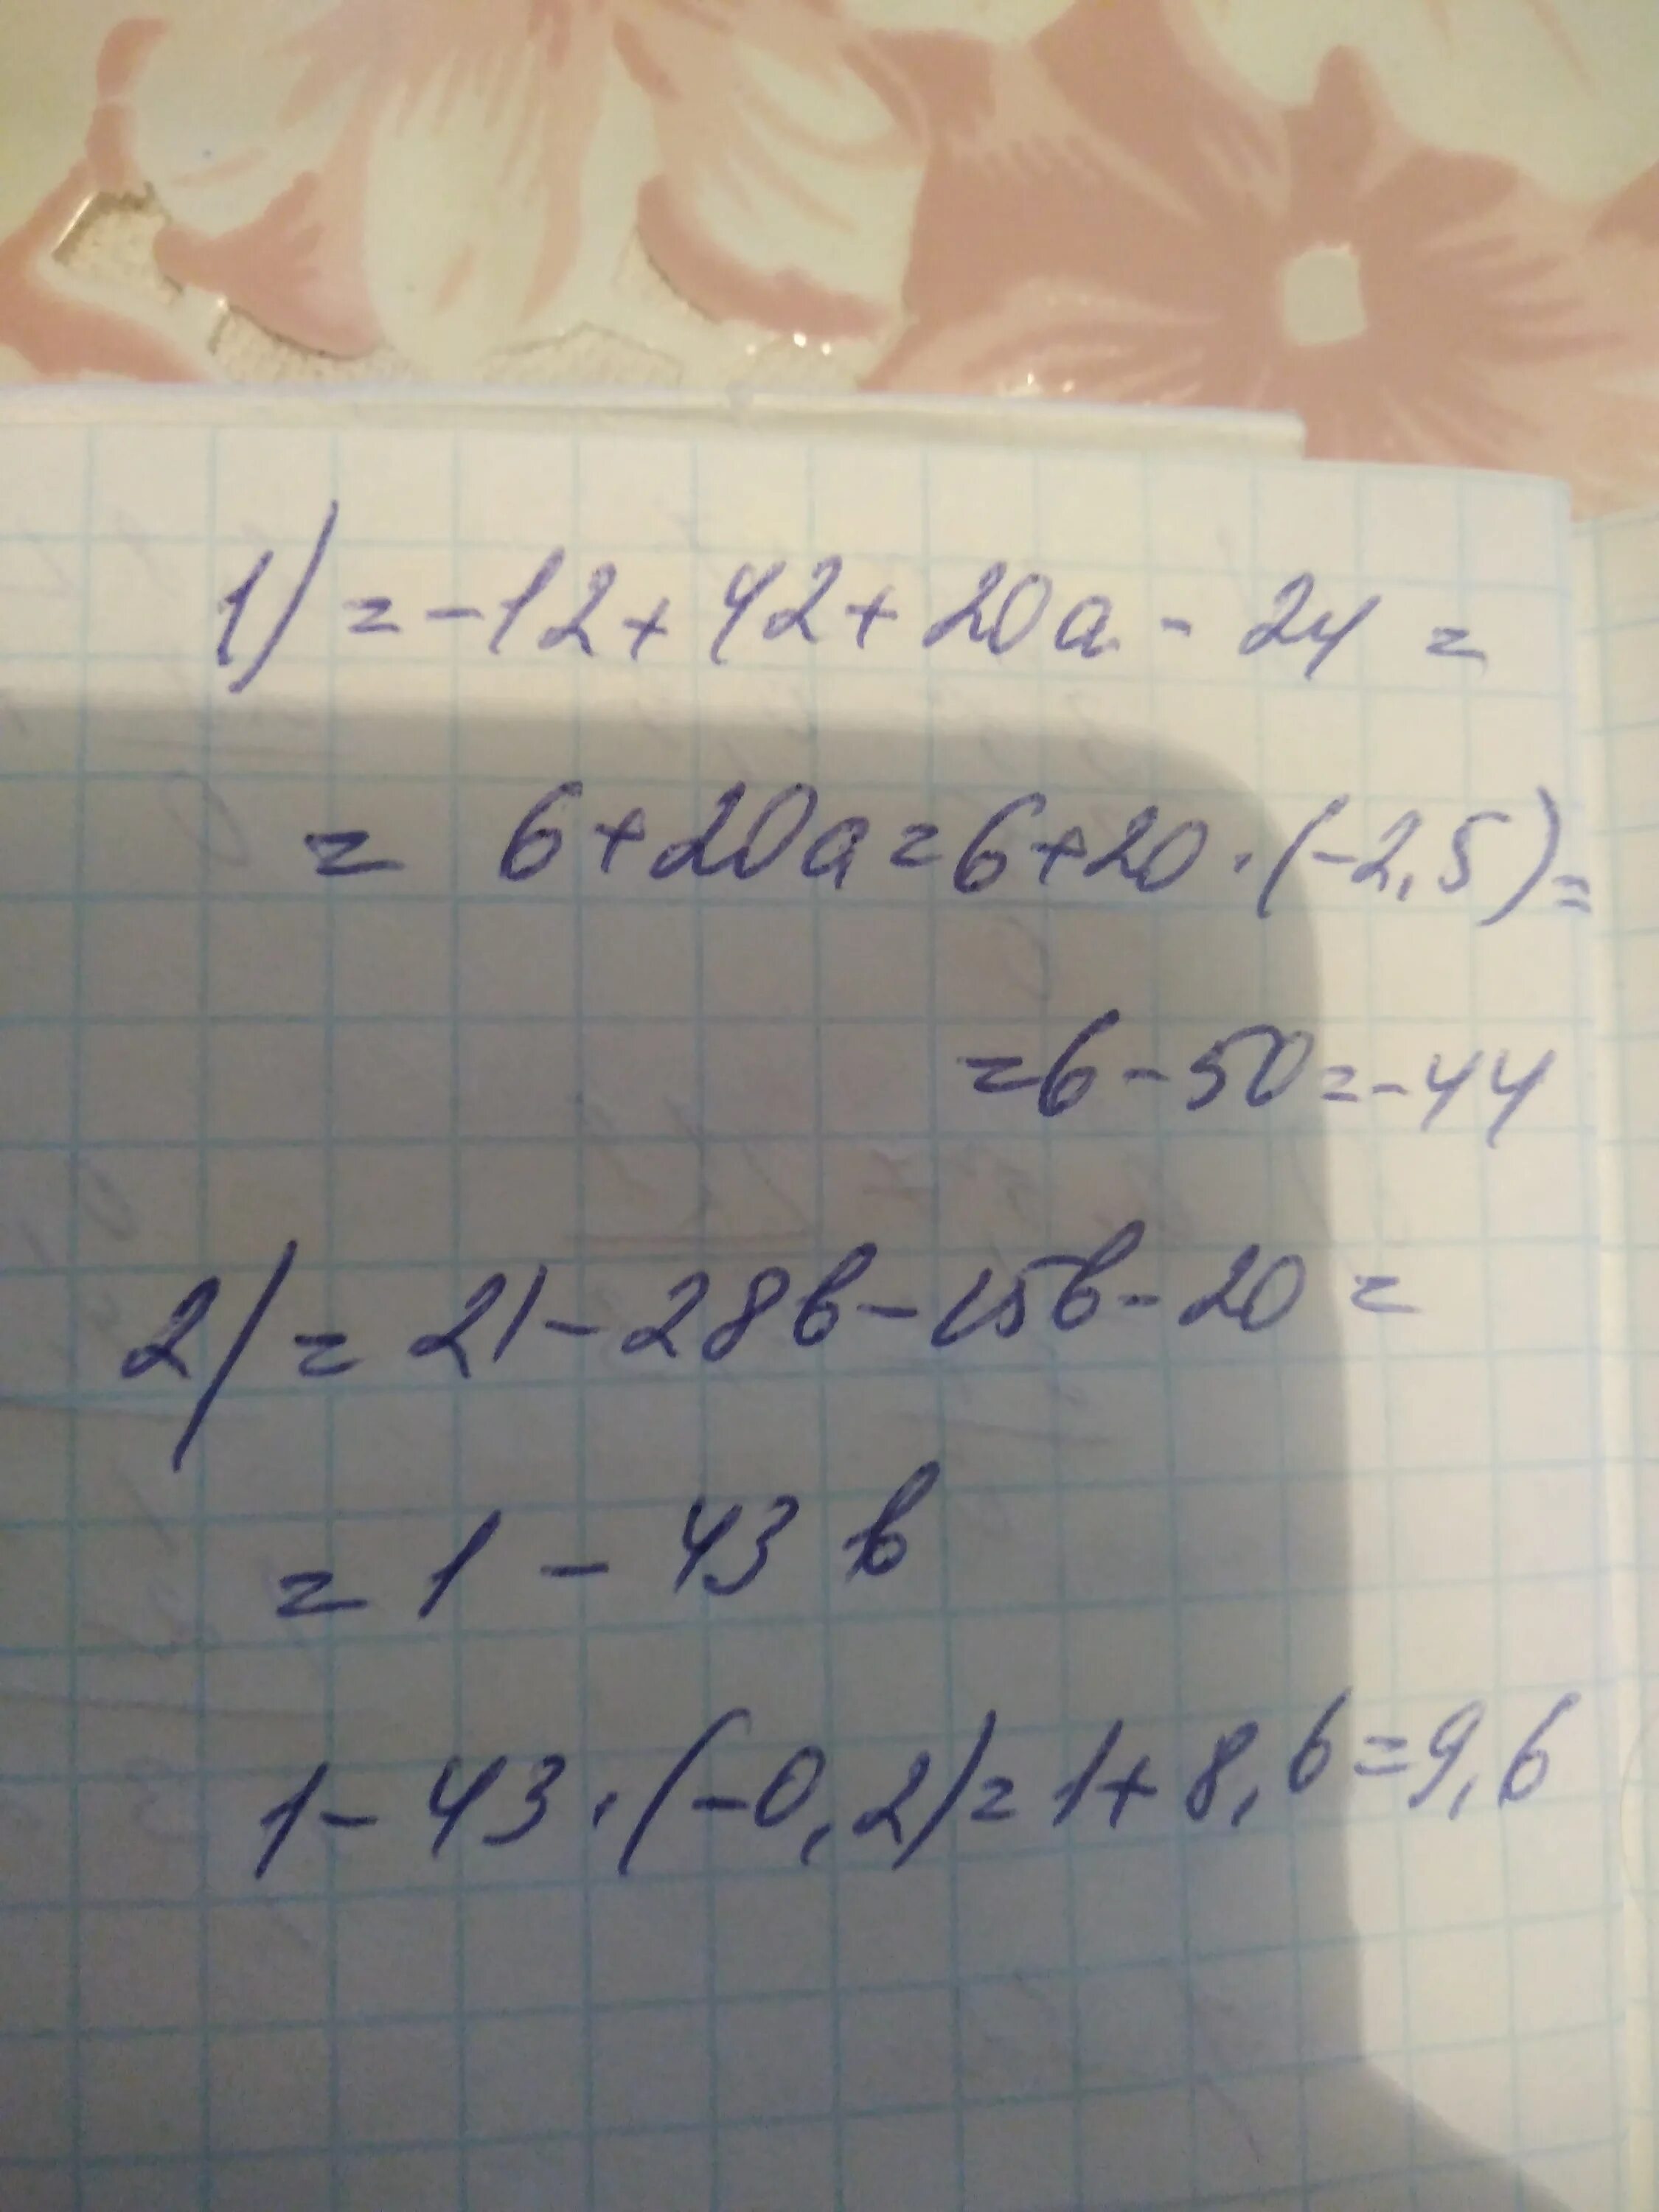 1) = -12 + 42 + 20a - 24 =
= 6 + 20a = 6 + 20 · (-2,5) =
= 6 - 50 = -44
2) = 21 - 28b - 15b - 20 =
= 1 - 43 b
1 - 43 · (-0,2) = 1 + 8,6 = 9,6